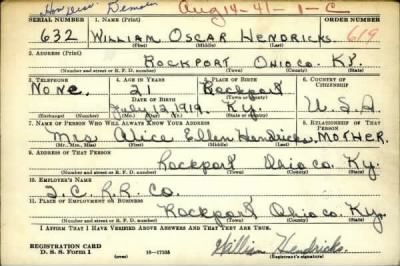 Aug 14-41-1-C
SERIAL NUMBER 1. NAME (Print) ORDER NUMBER
632 WILLIAM OSCAR HENDRICKS 619
(First) (Middle) (Last)
2. ADDRESS (Print)
ROCKPORT OHIO CO. KY.
(Number and street or R. F. D. number) (Town) (County) (State)
3. TELEPHONE 4. AGE IN YEARS 5. PLACE OF BIRTH 6. COUNTRY OF CITIZENSHIP
None. 21 Rockport
DATE OF BIRTH
July 1919 Ky. U.S.A
(Mo.) (Day) (Yr.) (State or country)
7. NAME OF PERSON WHO WILL ALWAYS KNOW YOUR ADDRESS 8. RELATIONSHIP OF THAT PERSON
Mrs Alice Ellen Hendricks, MOTHER.
(Mr., Mrs., Miss) (First) (Middle) (Last)
9. ADDRESS OF THAT PERSON
Rockport Ohio Co. Ky.
(Number and street or R. F. D. number) (Town) (County) (State)
10. EMPLOYER'S NAME
I. C. R.R. Co.
11. PLACE OF EMPLOYMENT OR BUSINESS
Rockport Ohio Co. Ky.
(Number and street or R. F. D. number) (Town) (County) (State)
I AFFIRM THAT I HAVE VERIFIED ABOVE ANSWERS AND THAT THEY ARE TRUE.
REGISTRATION CARD
D. S. S. Form 1 16-17105 William Hendricks.
(Registrant's signature)